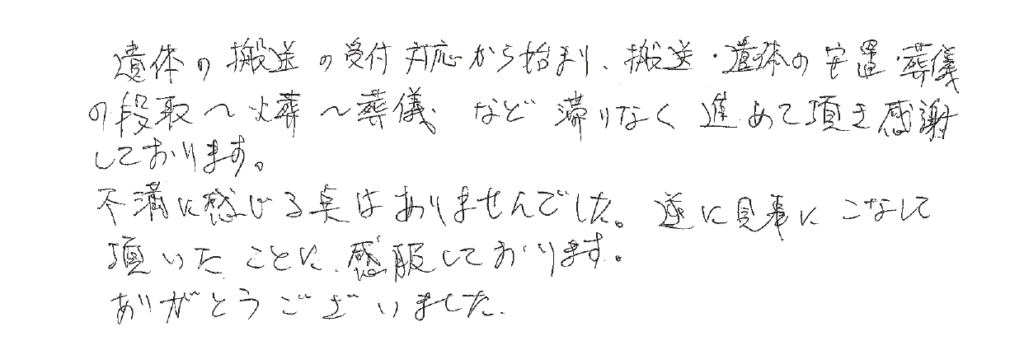 遺体の搬送の受付対応から始まり、搬送・遺体の安置・葬儀
の段取〜火葬〜葬儀、など滞りなく進めて頂き感謝
しております。
不満に感じる点はありませんでした。逆に見事にこなして
頂いたことに、感服しております。
ありがとうございました。